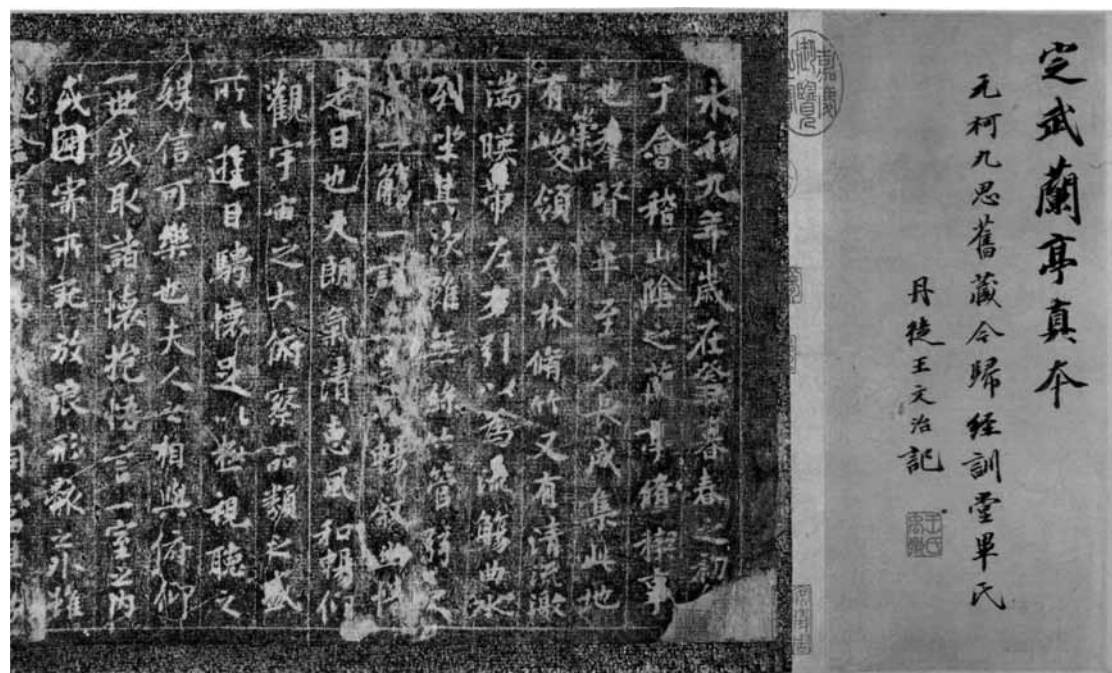 定武蘭亭真本
元柯九思舊藏今歸經訓堂畢氏
丹徒王文治記
永和九年歲在癸丑暮春之初
于會稽山陰之蘭亭脩稧事
也羣賢畢至少長咸集此地
有崇山峻領茂林脩竹又有清流激
湍暎帶左右引以為流觴曲水
列坐其次雖無絲竹管弦之
盛一觴一詠足以暢叙幽情
是日也天朗氣清惠風和暢仰
觀宇宙之大俯察品類之盛
所以遊目騁懷足以極視聽之
娛信可樂也夫人之相與俯仰
一世或取諸懷抱悟言一室之內
或因寄所託放浪形骸之外雖